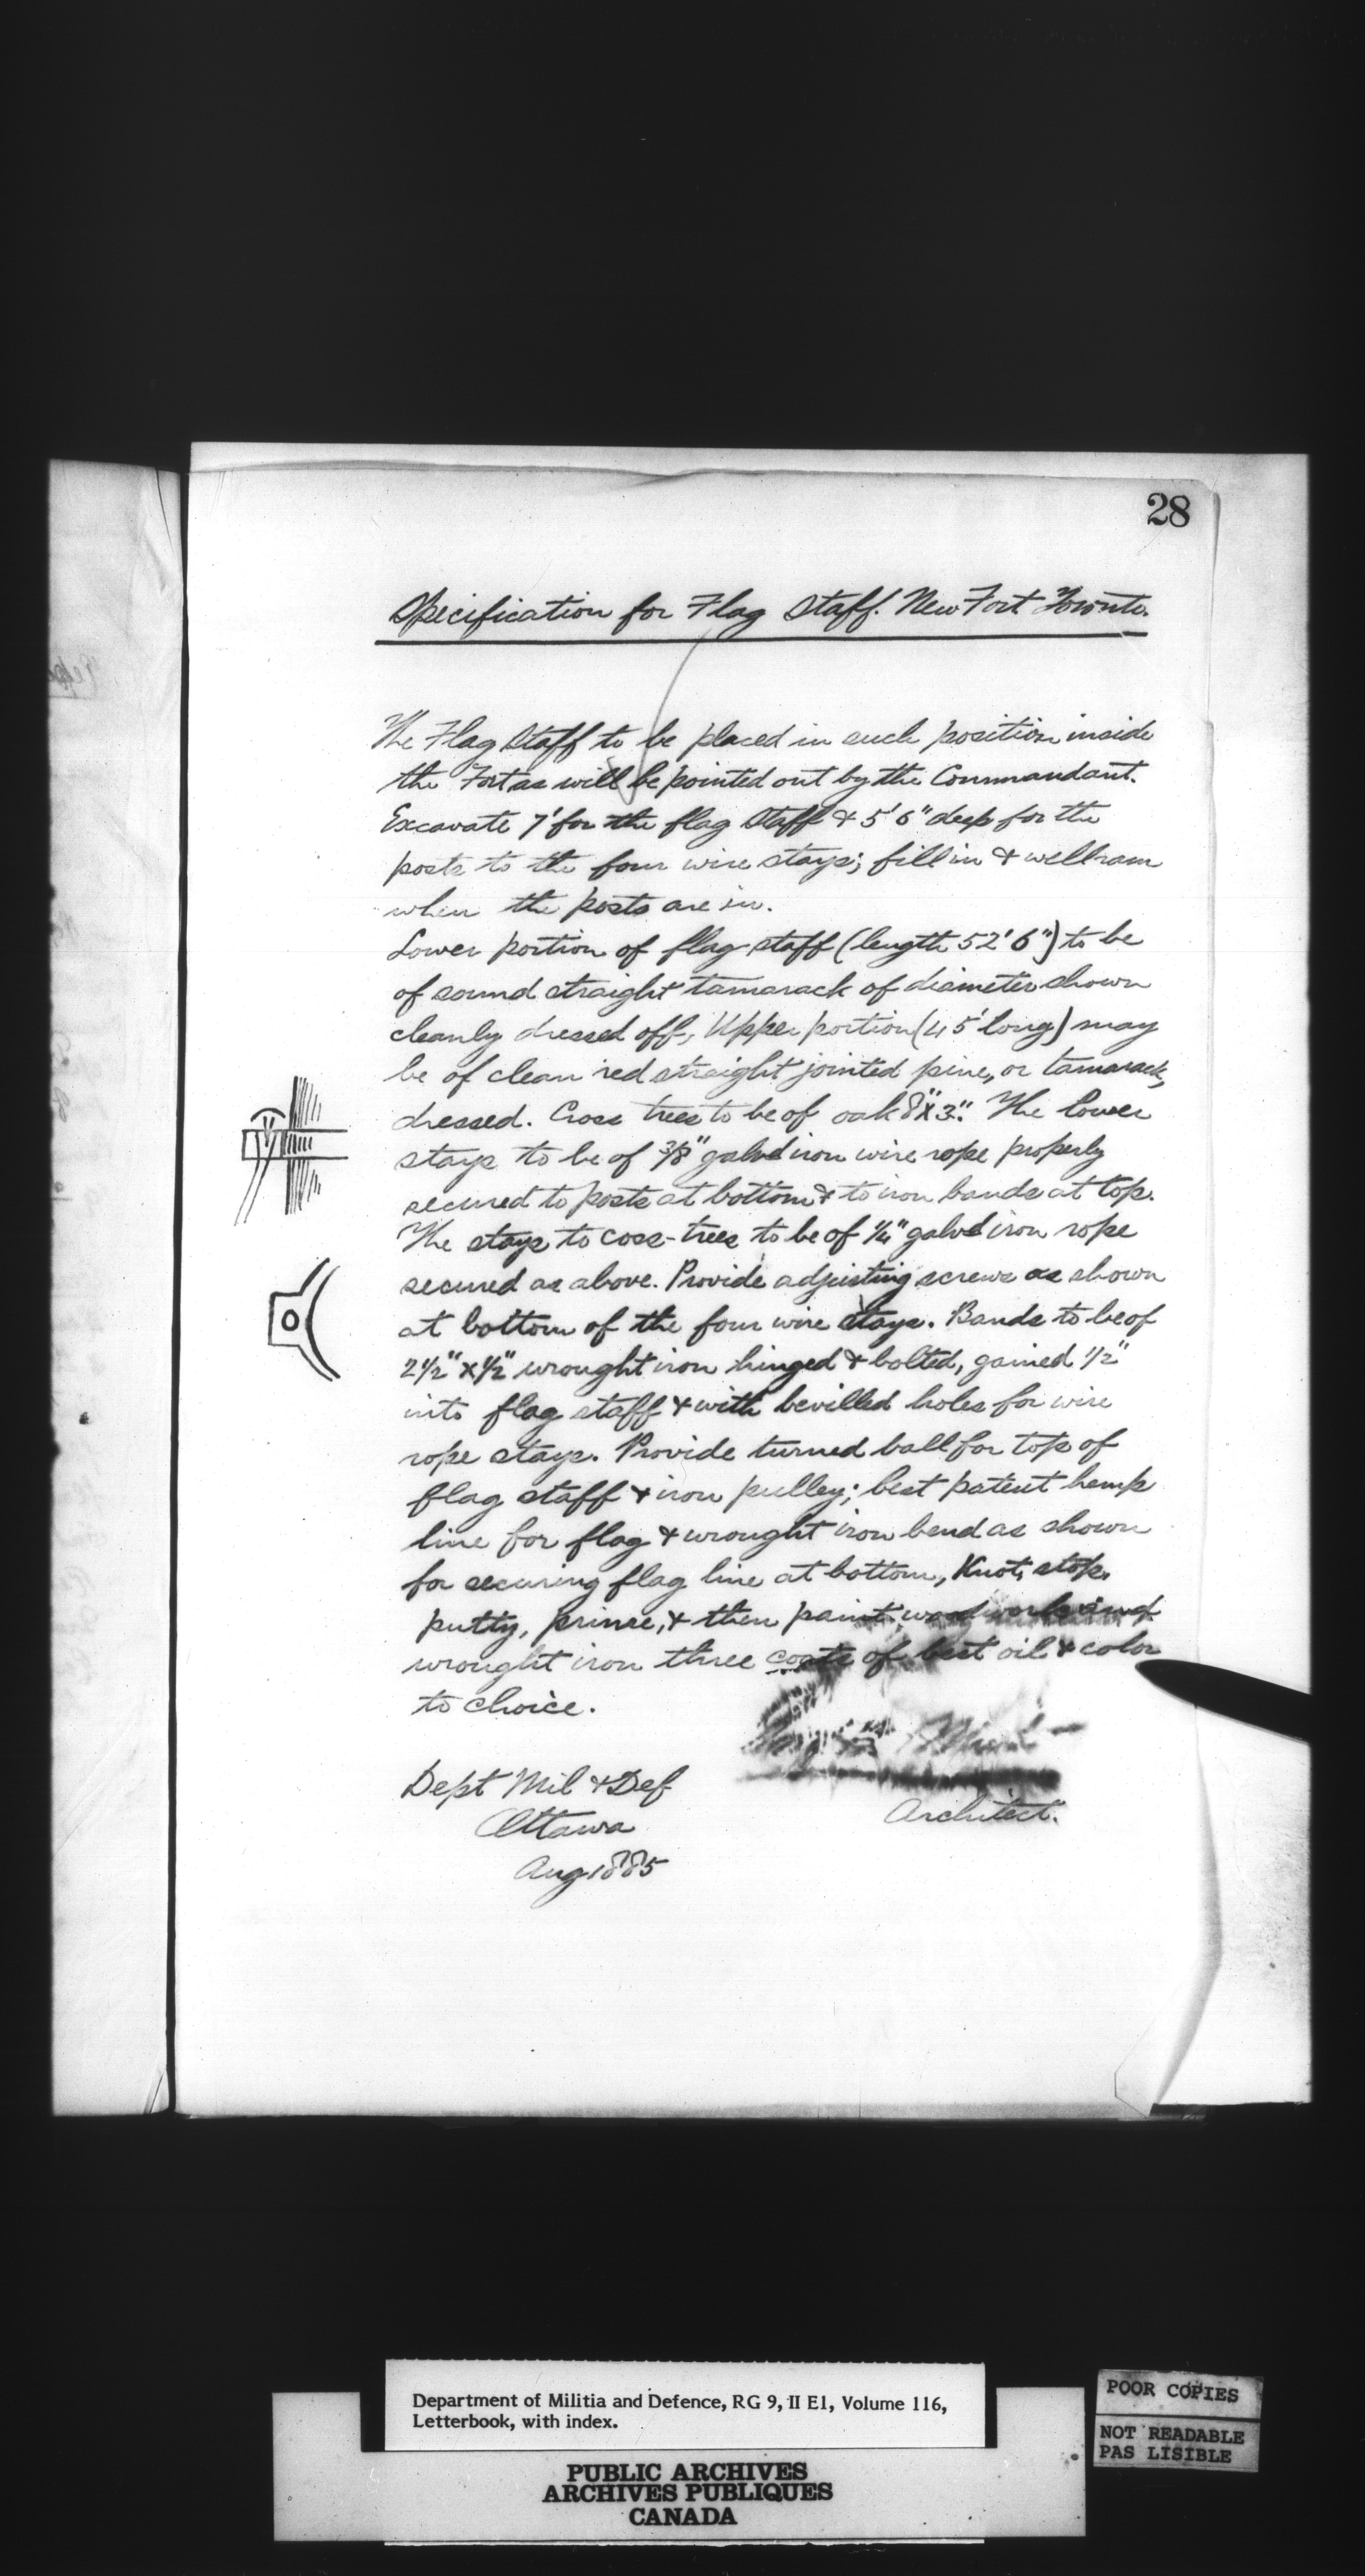 28
Specification for Flag Staff. New Fort Toronto.
The Flag Staff to be placed in such position inside
the Fort as will be pointed out by the Commandant.
Excavate 7' for the flag Staff & 5'6" deep for the
posts to the four wire stays; fill in & well ram
when the posts are in.
Lower portion of flag staff (length 52'6") to be
of sound straight tamarack of diameter shown
cleanly dressed off, Upper portion (45' long) may
be of clean red straight jointed pine, or tamarack,
dressed. Cross trees to be of oak 8"x3". The lower
stays to be of 3/8" galvd iron wire rope properly
secured to posts at bottom & to iron bands at top.
The stays to coss-trees to be of 1/4" galvd iron rope
secured as above. Provide adjusting screws as shown
at bottom of the four wire stays. Bands to be of
2 1/2" x 1/2" wrought iron hinged & bolted, gained 1/2"
into flag staff & with bevilled holes for wire
rope stays. Provide turned ball for top of
flag staff & iron pulley; best patent hemp
line for flag & wrought iron bend as shown
for securing flag line at bottom, Knot, stop,
putty, prime, & then paint woodwork and
wrought iron three coats of best oil & color
to choice.
Dept Mil & Def
Architect.
Ottawa
Aug 1885
Department of Militia and Defence, RG 9, II E1, Volume 116,
Letterbook, with index.
PUBLIC ARCHIVES
ARCHIVES PUBLIQUES
CANADA
POOR COPIES
NOT READABLE
PAS LISIBLE